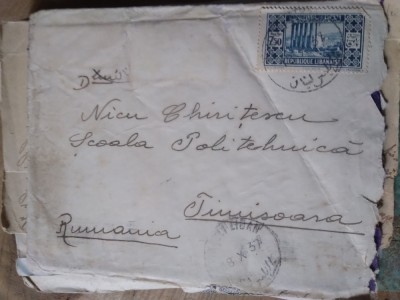 7.50
REPUBLIQUE LIBANAISE
Nicu Chirițescu
Școala Politehnică
Timisoara
Rumania